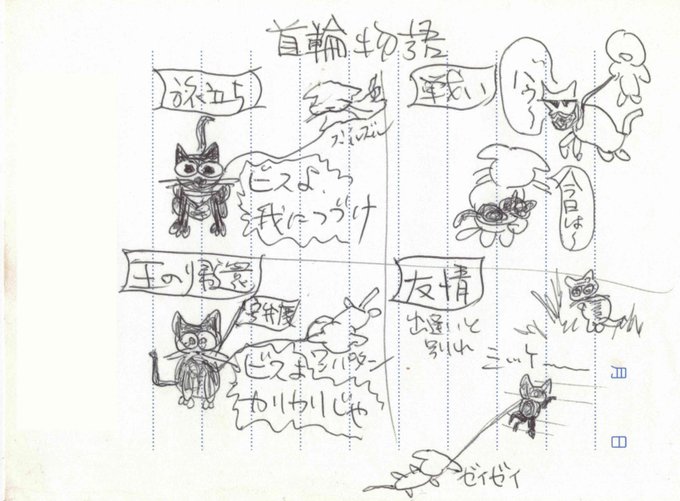 首輪物語
旅立ち
ズルズル
ビスよ、
我につづけ
戦い
バウ〜
今日は〜
王の帰還
ビスよ
カリカリじゃ
友情
出逢いと
別れ
ミッケーー
ゼイゼイ
月
日